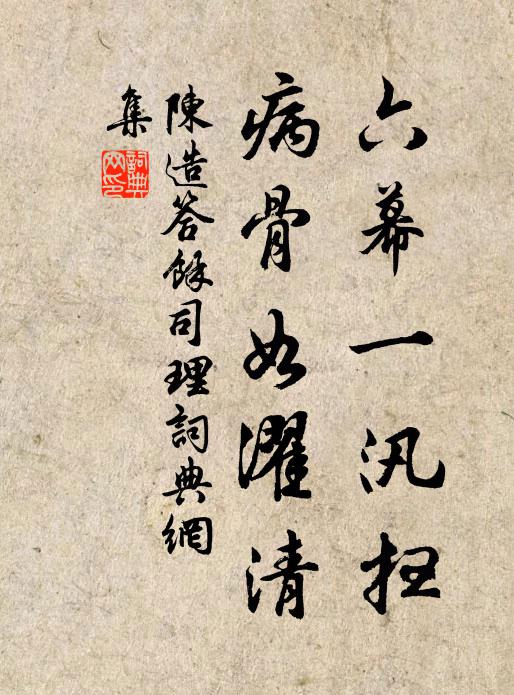 六幕一汛扫
病骨如濯清
陳造答餘司理詞典網
集
詞典网印